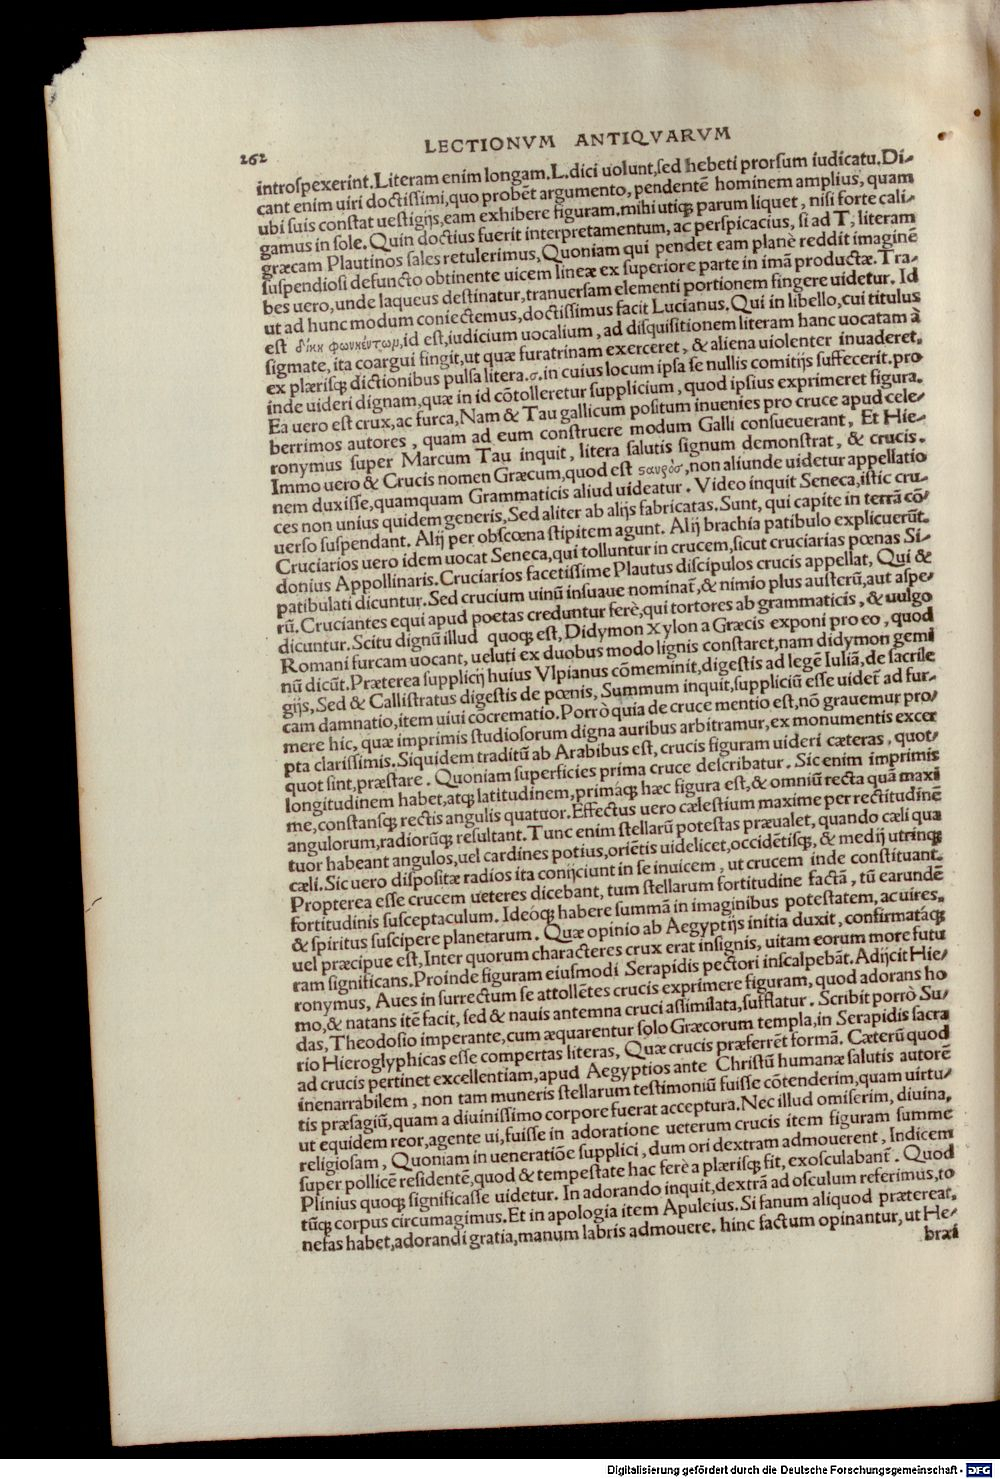 262
LECTIONVM ANTIQVARVM
introſpexerint.Literam enim longam.L.dici uolunt,ſed hebeti prorſum iudicatu.Di-
cant enim uiri doctiſſimi,quo probēt argumento, pendentē hominem amplius, quam
ubi ſuis conſtat ueſtigijs,eam exhibere figuram.mihi utiqꝫ parum liquet, niſi forte cali-
gamus in ſole. Quin doctius fuerit interpretamentum, ac perſpicacius, ſi ad T, literam
græcam Plautinos ſales retulerimus,Quoniam qui pendet eam planè reddit imaginē
ſuſpendioſi defuncto obtinente uicem lineæ ex ſuperiore parte in imā productæ.Tra-
bes uero,unde laqueus deſtinatur,tranuerſam elementi portionem fingere uidetur. Id
ut ad hunc modum coniectemus,doctiſſimus facit Lucianus.Qui in libello,cui titulus
eſt δίκη φωνηέντωμ,id eſt,iudicium uocalium, ad diſquiſitionem literam hanc uocatam à
ſigmate, ita coargui fingit,ut quæ furatrinam exerceret, & aliena uiolenter inuaderet.
ex plæriſqꝫ dictionibus pulſa litera.σ.in cuius locum ipſa ſe nullis comitijs ſuffecerit.pro
inde uideri dignam,quæ in id cōtolleretur ſupplicium, quod ipſius exprimeret figura.
Ea uero eſt crux,ac furca,Nam & Tau gallicum poſitum inuenies pro cruce apud cele-
berrimos autores, quam ad eum conſtruere modum Galli conſueuerant, Et Hie-
ronymus ſuper Marcum Tau inquit, litera ſalutis ſignum demonſtrat, & crucis.
Immo uero & Crucis nomen Græcum,quod eſt ϛαυρόσ,non aliunde uidetur appellatio
nem duxiſſe,quamquam Grammaticis aliud uideatur. Video inquit Seneca,iſtic cru-
ces non unius quidem generis,Sed aliter ab alijs fabricatas.Sunt, qui capite in terrā cō-
uerſo ſuſpendant. Alij per obſcœna ſtipitem agunt. Alij brachia patibulo explicuerūt.
Cruciarios uero idem uocat Seneca,qui tolluntur in crucem,ſicut cruciarias pœnas Si-
donius Appollinaris.Cruciarios facetiſſime Plautus diſcipulos crucis appellat, Qui &
patibulati dicuntur.Sed crucium uinū inſuaue nominat̄,& nimio plus auſterū,aut aſpe-
rū.Cruciantes equi apud poetas creduntur ferè,qui tortores ab grammaticis, & uulgo
dicuntur.Scitu dignū illud quoqꝫ eſt,Didymon Xylon a Græcis exponi pro eo, quod
Romani furcam uocant, ueluti ex duobus modo lignis conſtaret,nam didymon gemi
nū dicūt.Præterea ſupplicij huius Vlpianus cōmeminit,digeſtis ad legē Iuliā,de ſacrile
gijs,Sed & Calliſtratus digeſtis de pœnis, Summum inquit,ſuppliciū eſſe uidet̄ ad fur-
cam damnatio,item uiui cōcrematio.Porrò quia de cruce mentio eſt,nō grauemur pro-
mere hic, quæ imprimis ſtudioſorum digna auribus arbitramur,ex monumentis excer
pta clariſſimis.Siquidem traditū ab Arabibus eſt, crucis figuram uideri cæteras, quot-
quot ſint,præſtare. Quoniam ſuperficies prima cruce deſcribatur. Sic enim imprimis
longitudinem habet,atqꝫ latitudinem,primáqꝫ hæc figura eſt,& omniū recta quā maxi
me,conſtanſqꝫ rectis angulis quatuor.Effectus uero cæleſtium maxime per rectitudinē
angulorum,radiorūqꝫ reſultant.Tunc enim ſtellarū poteſtas præualet, quando cæli qua
tuor habeant angulos,uel cardines potius,oriētis uidelicet,occidētiſqꝫ, & medij utrinqꝫ
cæli.Sic uero diſpoſitæ radios ita conijciunt in ſe inuicem, ut crucem inde conſtituant.
Propterea eſſe crucem ueteres dicebant, tum ſtellarum fortitudine factā, tū earundē
fortitudinis ſuſceptaculum. Ideóqꝫ habere ſummā in imaginibus poteſtatem, ac uires.
& ſpiritus ſuſcipere planetarum. Quæ opinio ab Aegyptijs initia duxit, confirmatáqꝫ
uel præcipue eſt,Inter quorum characteres crux erat inſignis, uitam eorum more futu
ram ſignificans.Proinde figuram eiuſmodi Serapidis pectori inſcalpebāt.Adijcit Hie-
ronymus, Aues in ſurrectum ſe attollētes crucis exprimere figuram, quod adorans ho
mo,& natans itē facit, ſed & nauis antemna cruci aſſimilata,ſufflatur. Scribit porrò Su-
das,Theodoſio imperante,cum æquarentur ſolo Græcorum templa,in Serapidis ſacra
rio Hieroglyphicas eſſe compertas literas, Quæ crucis præferrēt formā. Cæterū quod
ad crucis pertinet excellentiam,apud Aegyptios ante Chriſtū humanæ ſalutis autorē
inenarrabilem, non tam muneris ſtellarum teſtimoniū fuiſſe cōtenderim,quam uirtu-
tis præſagiū,quam a diuiniſſimo corpore fuerat acceptura.Nec illud omiſerim, diuina,
ut equidem reor,agente ui,fuiſſe in adoratione ueterum crucis item figuram ſumme
religioſam, Quoniam in ueneratiōe ſupplici, dum ori dextram admouerent, Indicem
ſuper pollicē reſidentē,quod & tempeſtate hac ferè a plæriſqꝫ fit, exoſculabant̄. Quod
Plinius quoqꝫ ſignificaſſe uidetur. In adorando inquit,dextrā ad oſculum referimus,to
tūqꝫ corpus circumagimus.Et in apologia item Apuleius.Si fanum aliquod prætereat.
nefas habet,adorandi gratia,manum labris admouere. hinc factum opinantur, ut He-
bræi
Digitalisierung gefördert durch die Deutsche Forschungsgemeinschaft - DFG